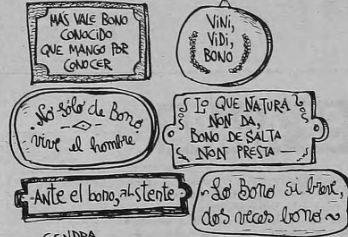 MÁS VALE BONO
CONOCIDO
QUE MANGO POR
CONOCER
VINI,
VIDI,
BONO
No sólo de Bono
vive el hombre
LO QUE NATURA
NON DA,
BONO DE SALTA
NON PRESTA —
Ante el bono, absténte
Lo Bono si breve,
dos veces bono
SENDRA